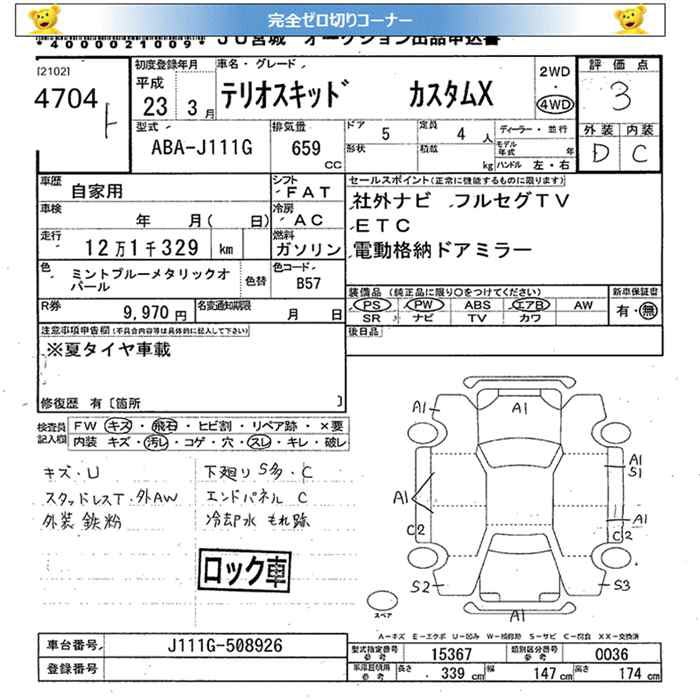 完全ゼロ切りコーナー
*4000021009* JU宮城 オークション出品申込書
[2102]
4704 ト
初度登録年月 平成 23 3月
車名・グレード テリオスキッド カスタムX
2WD ・ 4WD
評価点 3
外装 内装
D C
型式 ABA-J111G
排気量 659 CC
ドア 5
定員 4 人
形状
積載 kg
ディーラー・並行
モデル年式 年
ハンドル 左・右
車歴 自家用
シフト FAT
車検 年 月( 日)
冷房 AC
走行 12万1千329 km
燃料 ガソリン
色 ミントブルーメタリックオパール
色替
色コード B57
R券 9,970円
名変通知期限 月 日
セールスポイント(正常に機能するものに限ります)
社外ナビ フルセグTV
ETC
電動格納ドアミラー
装備品 (純正品に限り○をつけてください)
新車保証書
PS PW ABS エアB AW
有・無
SR ナビ TV カワ
後日品
注意事項申告欄(不具合内容等は具体的に記入して下さい)
※夏タイヤ車載
修復歴 有〔箇所 〕
検査員記入欄
FW キズ・飛石・ヒビ割・リペア跡・×要
内装 キズ・汚れ・コゲ・穴・スレ・キレ・破レ
キズ・U
スタッドレスT・外AW
外装 鉄粉
下廻り S多・C
エンドパネル C
冷却水 もれ跡
ロック車
A1 A1
A1 A1 S1
C2 A1 C2
S2 S3
A1
スペア
A-キズ E-エクボ U-凹み W-補修跡 S-サビ C-腐食 XX-交換済
車台番号 J111G-508926
登録番号
型式指定番号 参考 15367
類別区分番号 参考 0036
車庫証明用 参考 長さ 339 cm 幅 147 cm 高さ 174 cm